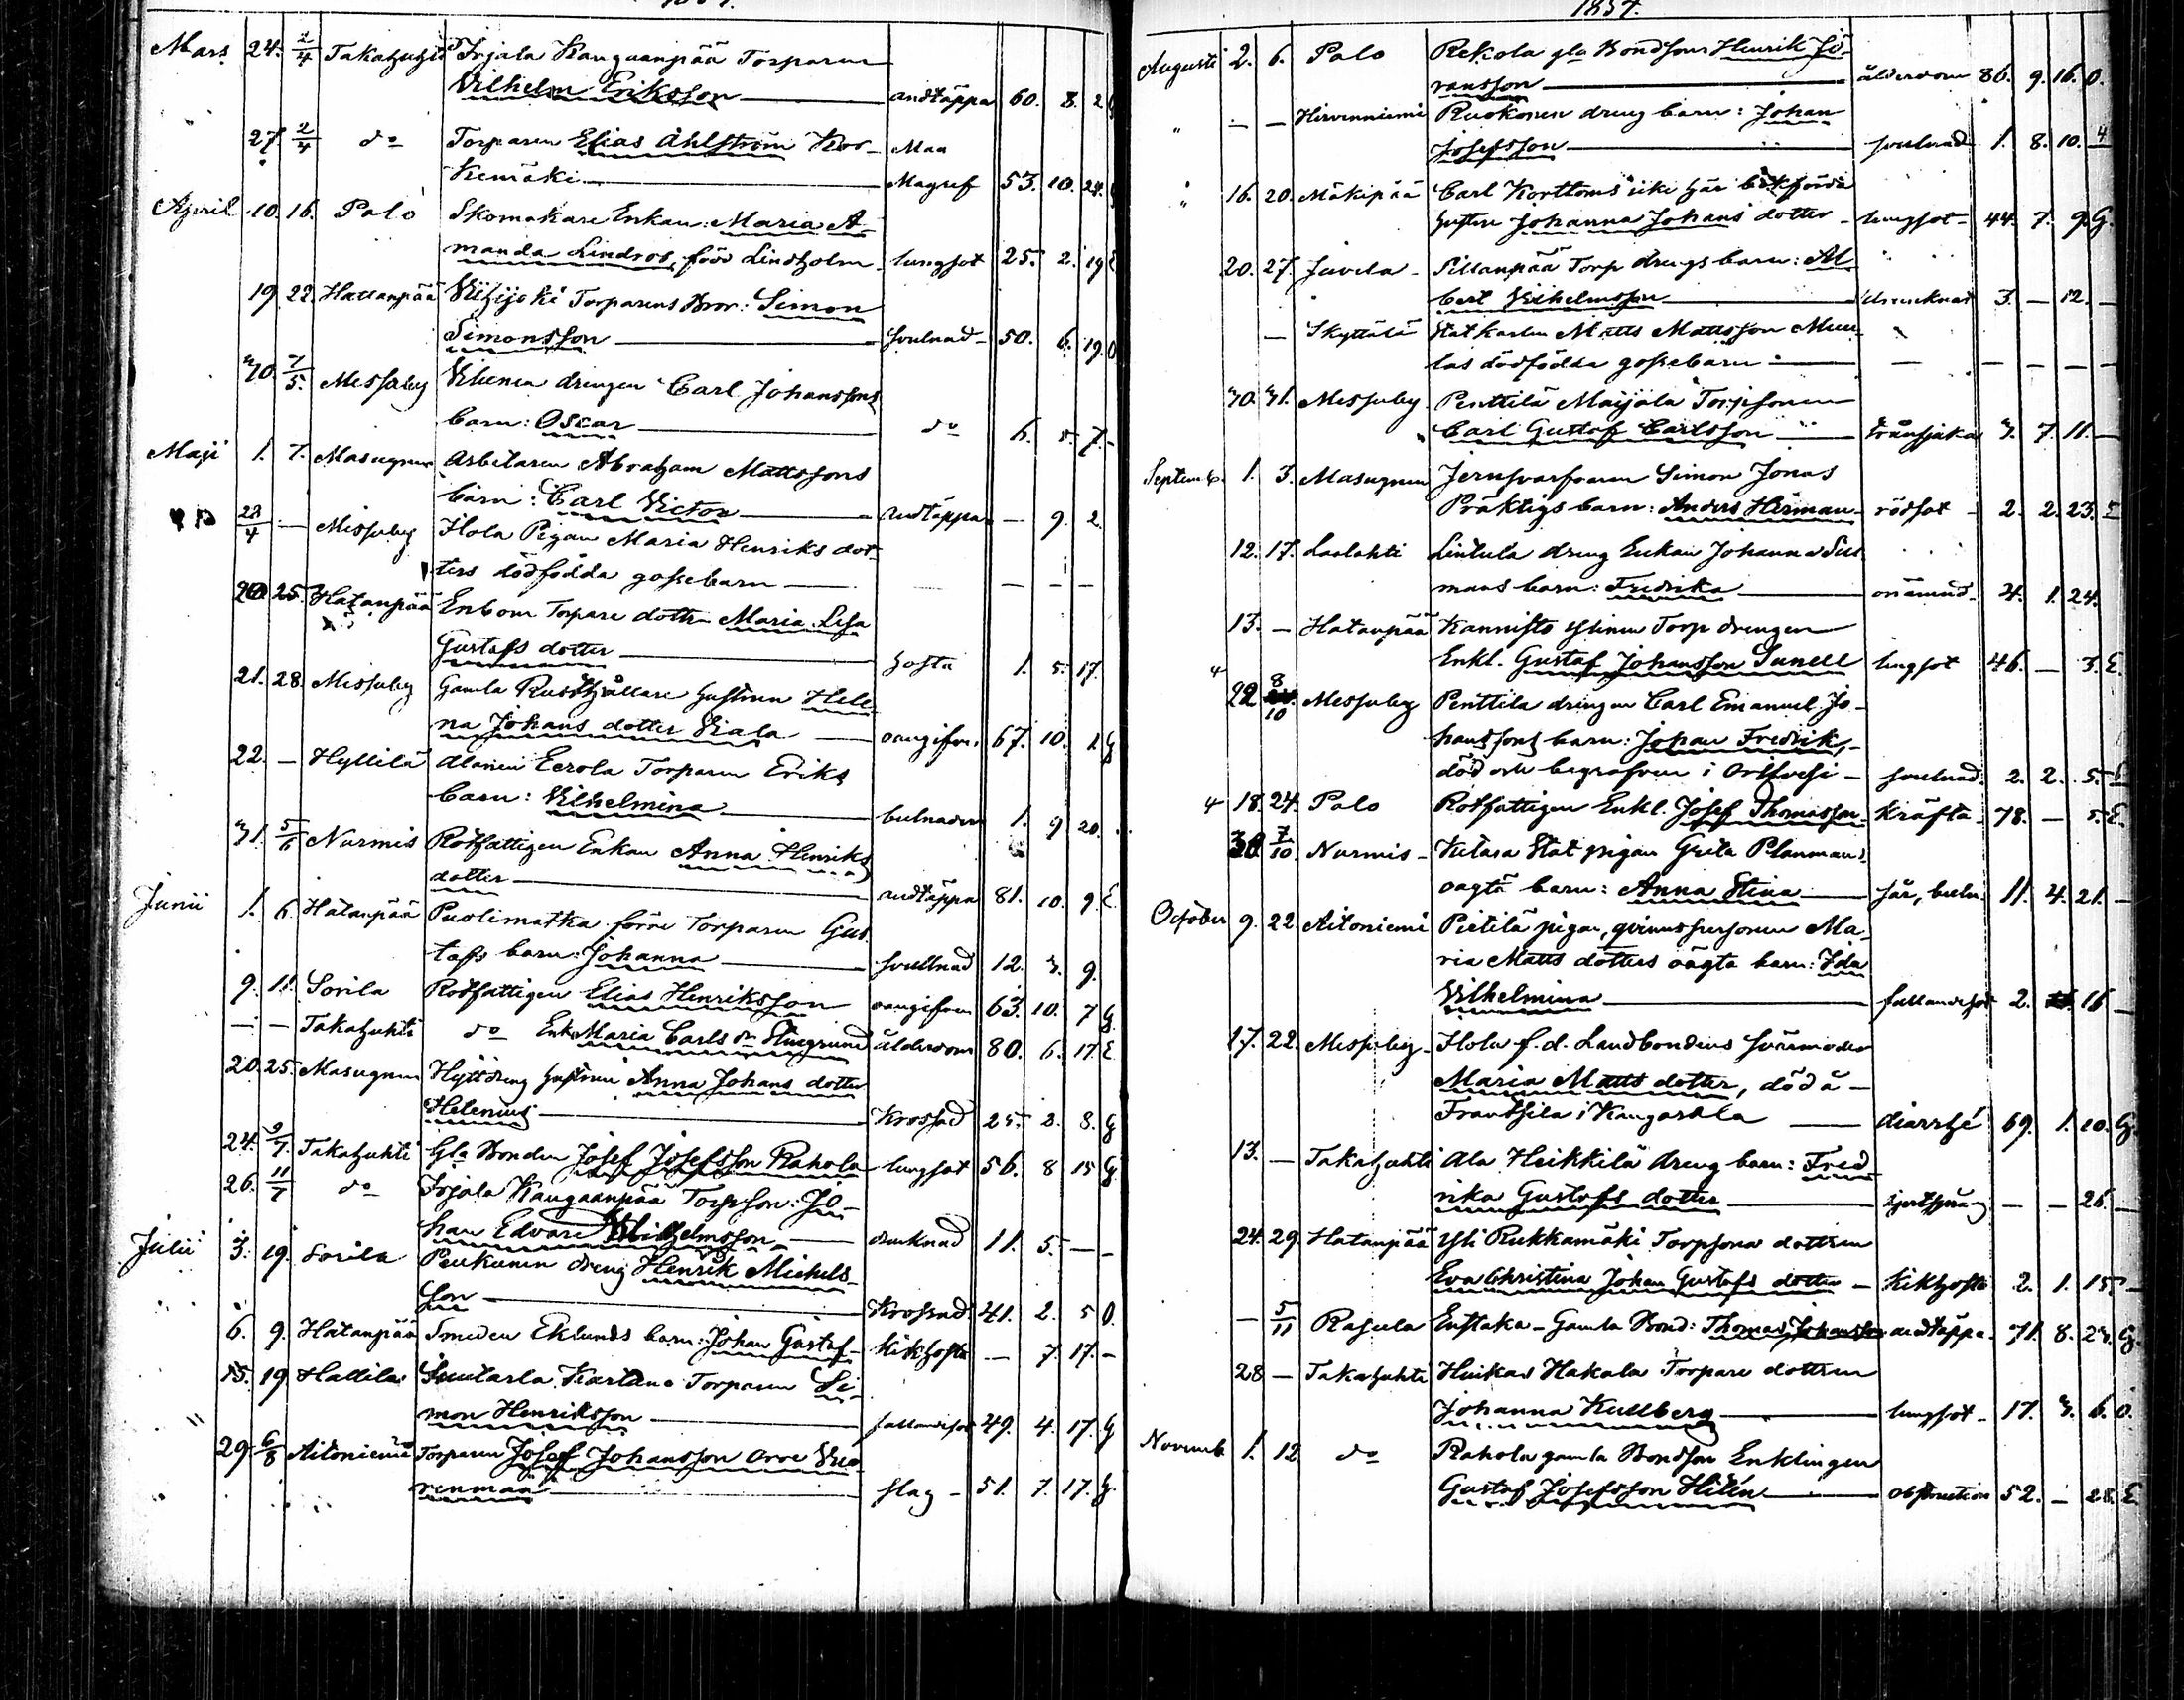 Mars 24. 2/4 Takahuhti Irjala Kangaanpää Torparen
Vilhelm Eriksson andtäppa 60. 8. 2
27. 2/4 do Torparen Elias Ahlström Kor-
kiamäki Magref 53. 10. 24.
April 10. 16. Palo Skomakare Enkan: Maria A-
manda Lindros, född Lindholm lungsot 25. 2. 19
19. 22. Hatanpää Torparens Bror: Simon
Simonsson svulnad 50. 6. 19. O
30. 7/5. Messuby drengen Carl Johanssons
barn: Oscar do 6. 5. 7. -
Maji 1. 7. Masugnen Arbetaren Abraham Mattssons
barn: Carl Victor andtäppa - 9. 2.
23/4 - Messuby Hola Pigan Maria Henriks dot-
ters dödfödda gossebarn - - - -
20. 25. Hatanpää Enbom Torpare dottren Maria Lisa
Gustafs dotter hosta 1. 5. 17.
21. 28. Messuby Gamla Rusthållare hustrun Hele-
na Johans dotter Viala oangifven 67. 10. 1. G
22. - Hyllilä Alanen Eerola Torparen Eriks
barn: Vilhelmina bulnader 1. 9. 20.
31. 5/6 Nurmis Rotfattigen Enkan Anna Henriks
dotter andtäppa 81. 10. 9. E
Junii 1. 6. Hatanpää Puolimatka förre Torparen Gus-
tafs barn: Johanna svullnad 12. 3. 9.
9. 11. Sorila Rotfattigen Elias Henriksson oangifven 63. 10. 7 G
- - Takahuhti do Enk. Maria Carls dr ålderdom 80. 6. 17. E
20. 25. Masugnen Hyttdreng hustrun Anna Johans dotter
Helenius Krossad 25. 2. 8. G
24. 2/7. Takahuhti Gla Bonden Josef Josefsson Rahola lungsot 56. 8 15 G
26. 11/7 do Irjala Kangaanpää Torpson: Jo-
han Edvard Vilhelmsson drunknad 11. 5. - -
Julii 3. 19. Sorila Penkunen dreng Henrik Michels-
son Krossad 41. 2. 5 O.
6. 9. Hatanpää Smeden Eklunds barn: Johan Gustaf kikhosta - 7. 17. -
15. 19 Hallila Torparen Si-
mon Henriksson fallandesot 49. 4. 17. G
29. 6/8 Aitoniemi Torparen Josef Johansson Orve Vuo-
renmaa slag - 51. 7. 17. G
1857.
Augusti 2. 6. Palo Rekola gla Bondsons Henrik Jö-
ransson ålderdom 86. 9. 16. O.
" - - Hirvenniemi Ruokonen dreng barn: Johan
Josefsson svulnad 1. 8. 10.
" 16. 20. Mäkipää Carl Korttoms icke här
hustru Johanna Johans dotter - lungsot - 44. 7. 9. G.
20. 27. Juvela - Sillanpää Torp drengs barn: Al-
bert Vilhelmsson drunknat 3. - 12. -
- Skyttälä Statkarlen Matts Mattsson
las dödfödda gossebarn - - - - -
30. 31. Messuby Penttilä Maijala Torpsonen
Carl Gustaf Carlsson 3. 7. 11. -
Septemb. 1. 3. Masugnen Simon Jonas
Präktigs barn: Anders Herman rödsot - 2. 2. 23.
12. 17. Laalahti Lintula dreng Enkan Johanna
mans barn: Fredrika onämnd 4. 1. 24.
13. - Hatanpää Kannisto Torp drengen
Enkl. Gustaf Johansson Sunell lungsot 46. - 3. E.
22 8/10 Messuby Penttilä drengen Carl Emanuel Jo-
hanssons barn: Johan Fredrik,
död och begrafven i Orifvesi - svulnad 2. 2. 5.
18. 24. Palo Rotfattigen Enkl. Josef Thomasson Kräfta 78. - 5. E.
30 7/10 Nurmis - Stat pigan Greta Planmans
oägta barn: Anna Stina sår, buln. 11. 4. 21. -
October 9. 22. Aitoniemi Pietilä pigan, qvinnspersonen Ma-
ria Matts dotters oägta barn: Ida
Vilhelmina fallandesot 2. 16 -
17. 22. Messuby Hola f. d. Landbondens svärmoder
Maria Matts dotter, död å -
Frantsila i Kangasala diarrhé 69. 1. 10. G.
13. - Takahuhti Ala Heikkilä dreng barn: Fred-
rika Gustafs dotter - - 26. -
24. 29. Hatanpää Yli Rukkamäki Torpsons dottren
Eva Christina Johan Gustafs dotter - Kikhosta 2. 1. 15. -
- 5/11 Rasula Enstaka - Gamla Bond: Thomas Johansson andtäppa 71. 8. 23. G.
28 - Takahuhti Huikas Hakala Torpare dottren
Johanna Kullberg lungsot 17. 3. 6. O.
Novemb. 1. 12 do Rahola gamla Bondson Enklingen
Gustaf Josefsson Hilén obstruction 52. - 28. E.